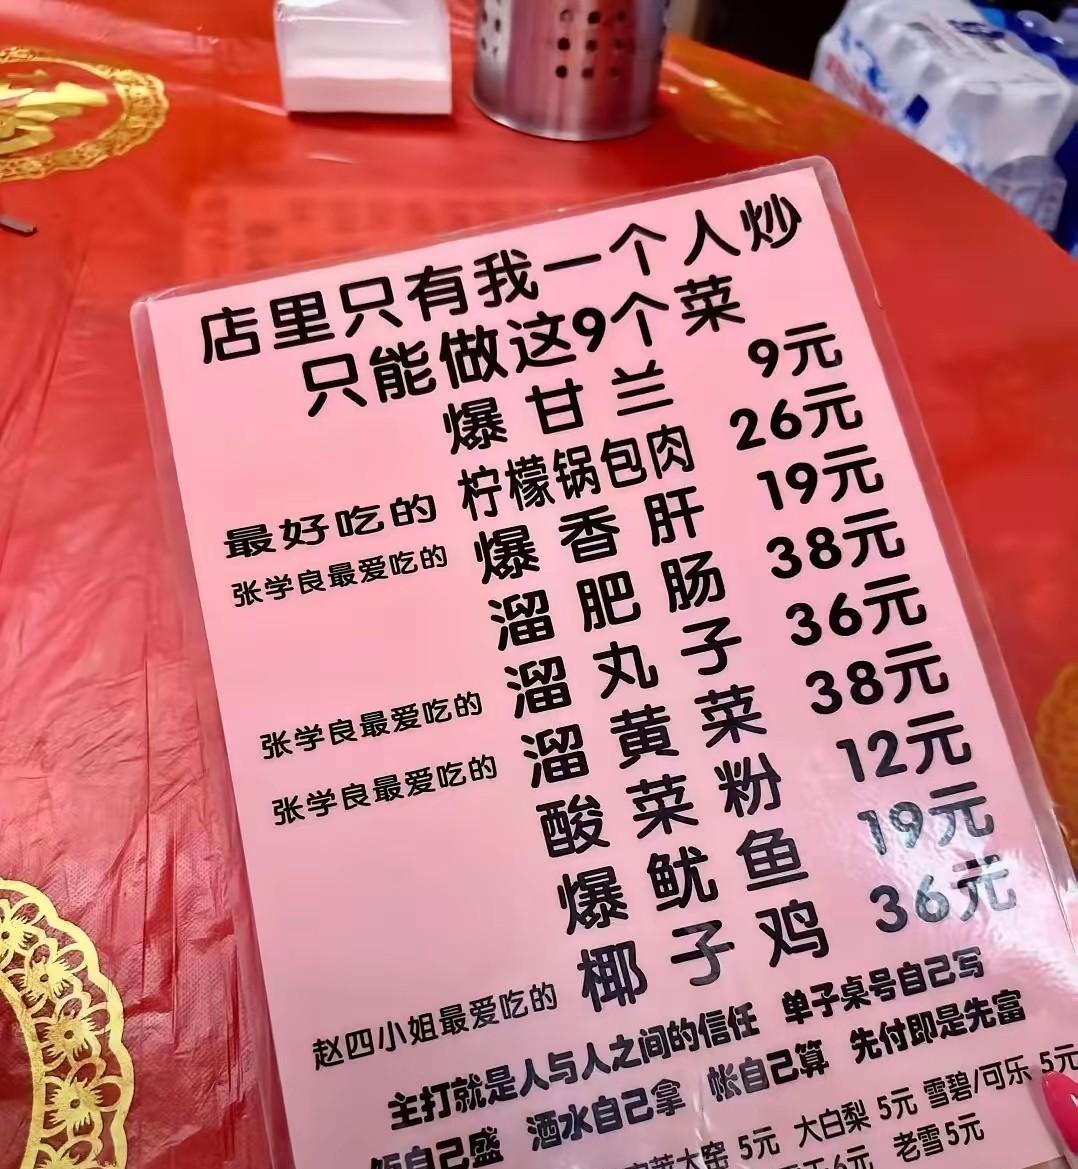 店里只有我一个人炒
只能做这9个菜
爆甘兰 9元
最好吃的 柠檬锅包肉 26元
张学良最爱吃的 爆香肝 19元
溜肥肠 38元
张学良最爱吃的 溜丸子 36元
张学良最爱吃的 溜黄菜 38元
酸菜粉 12元
爆鱿鱼 19元
赵四小姐最爱吃的 椰子鸡 36元
主打就是人与人之间的信任 单子桌号自己写
饭自己盛 酒水自己拿 帐自己算 先付即是先富
大窑 5元 大白梨 5元 雪碧/可乐 5元
6元 老雪5元